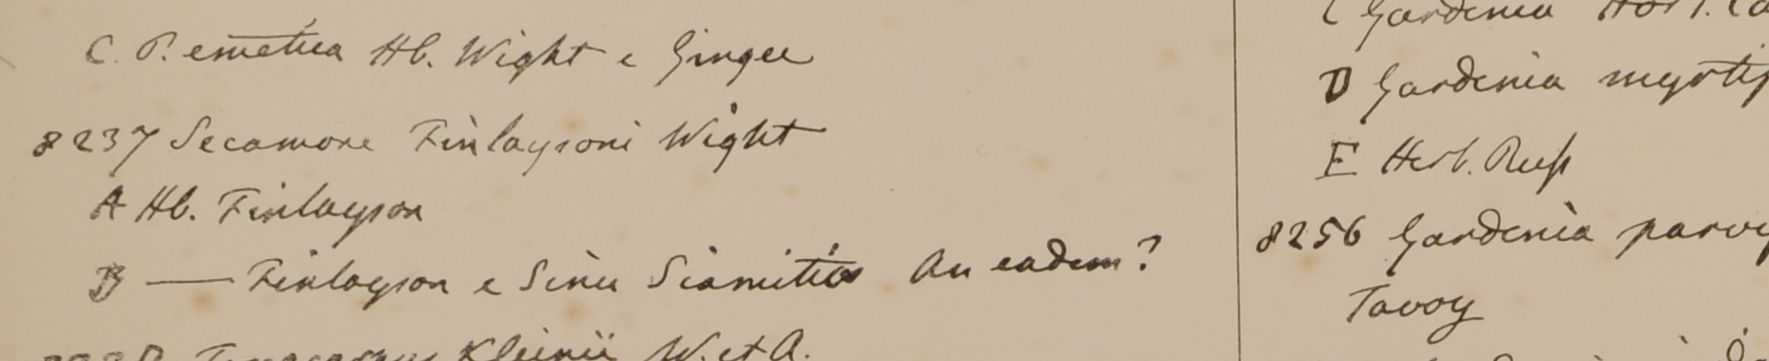 C P. emetica Hb. Wight e Gingee
8237 Secamone Finlaysoni Wight
A Hb. Finlayson
B — Finlayson e Sinu Siamitico An eadem?
Kleinii W. et A.
Gardenia Hort.
D Gardenia
E Herb. Russ
8256 Gardenia
Tavoy